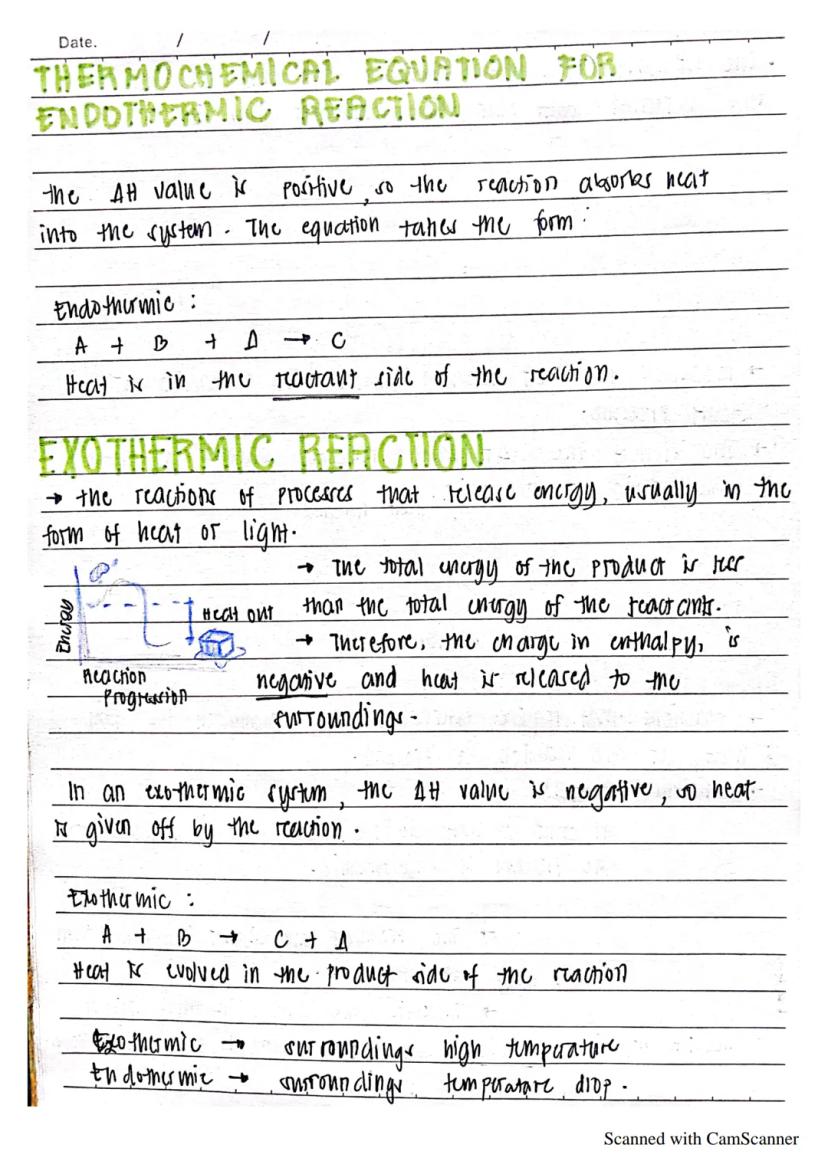 Date. / /
THERMOCHEMICAL EQUATION FOR
ENDOTHERMIC REACTION
the ΔH value is positive, so the reaction absorbs heat
into the system. The equation takes the form:
Endothermic:
A + B + Δ → C
Heat is in the reactant side of the reaction.
EXOTHERMIC REACTION
→ the reactions of processes that release energy, usually in the
form of heat or light.
→ The total energy of the product is less
than the total energy of the reactants.
→ Therefore, the change in enthalpy, is
negative and heat is released to the
surroundings.
Energy
Heat out
Reaction
Progression
In an exothermic system, the ΔH value is negative, so heat
is given off by the reaction.
Exothermic:
A + B → C + Δ
Heat is evolved in the product side of the reaction
Exothermic → surroundings high temperature
Endothermic → surroundings temperature drop.
Scanned with CamScanner